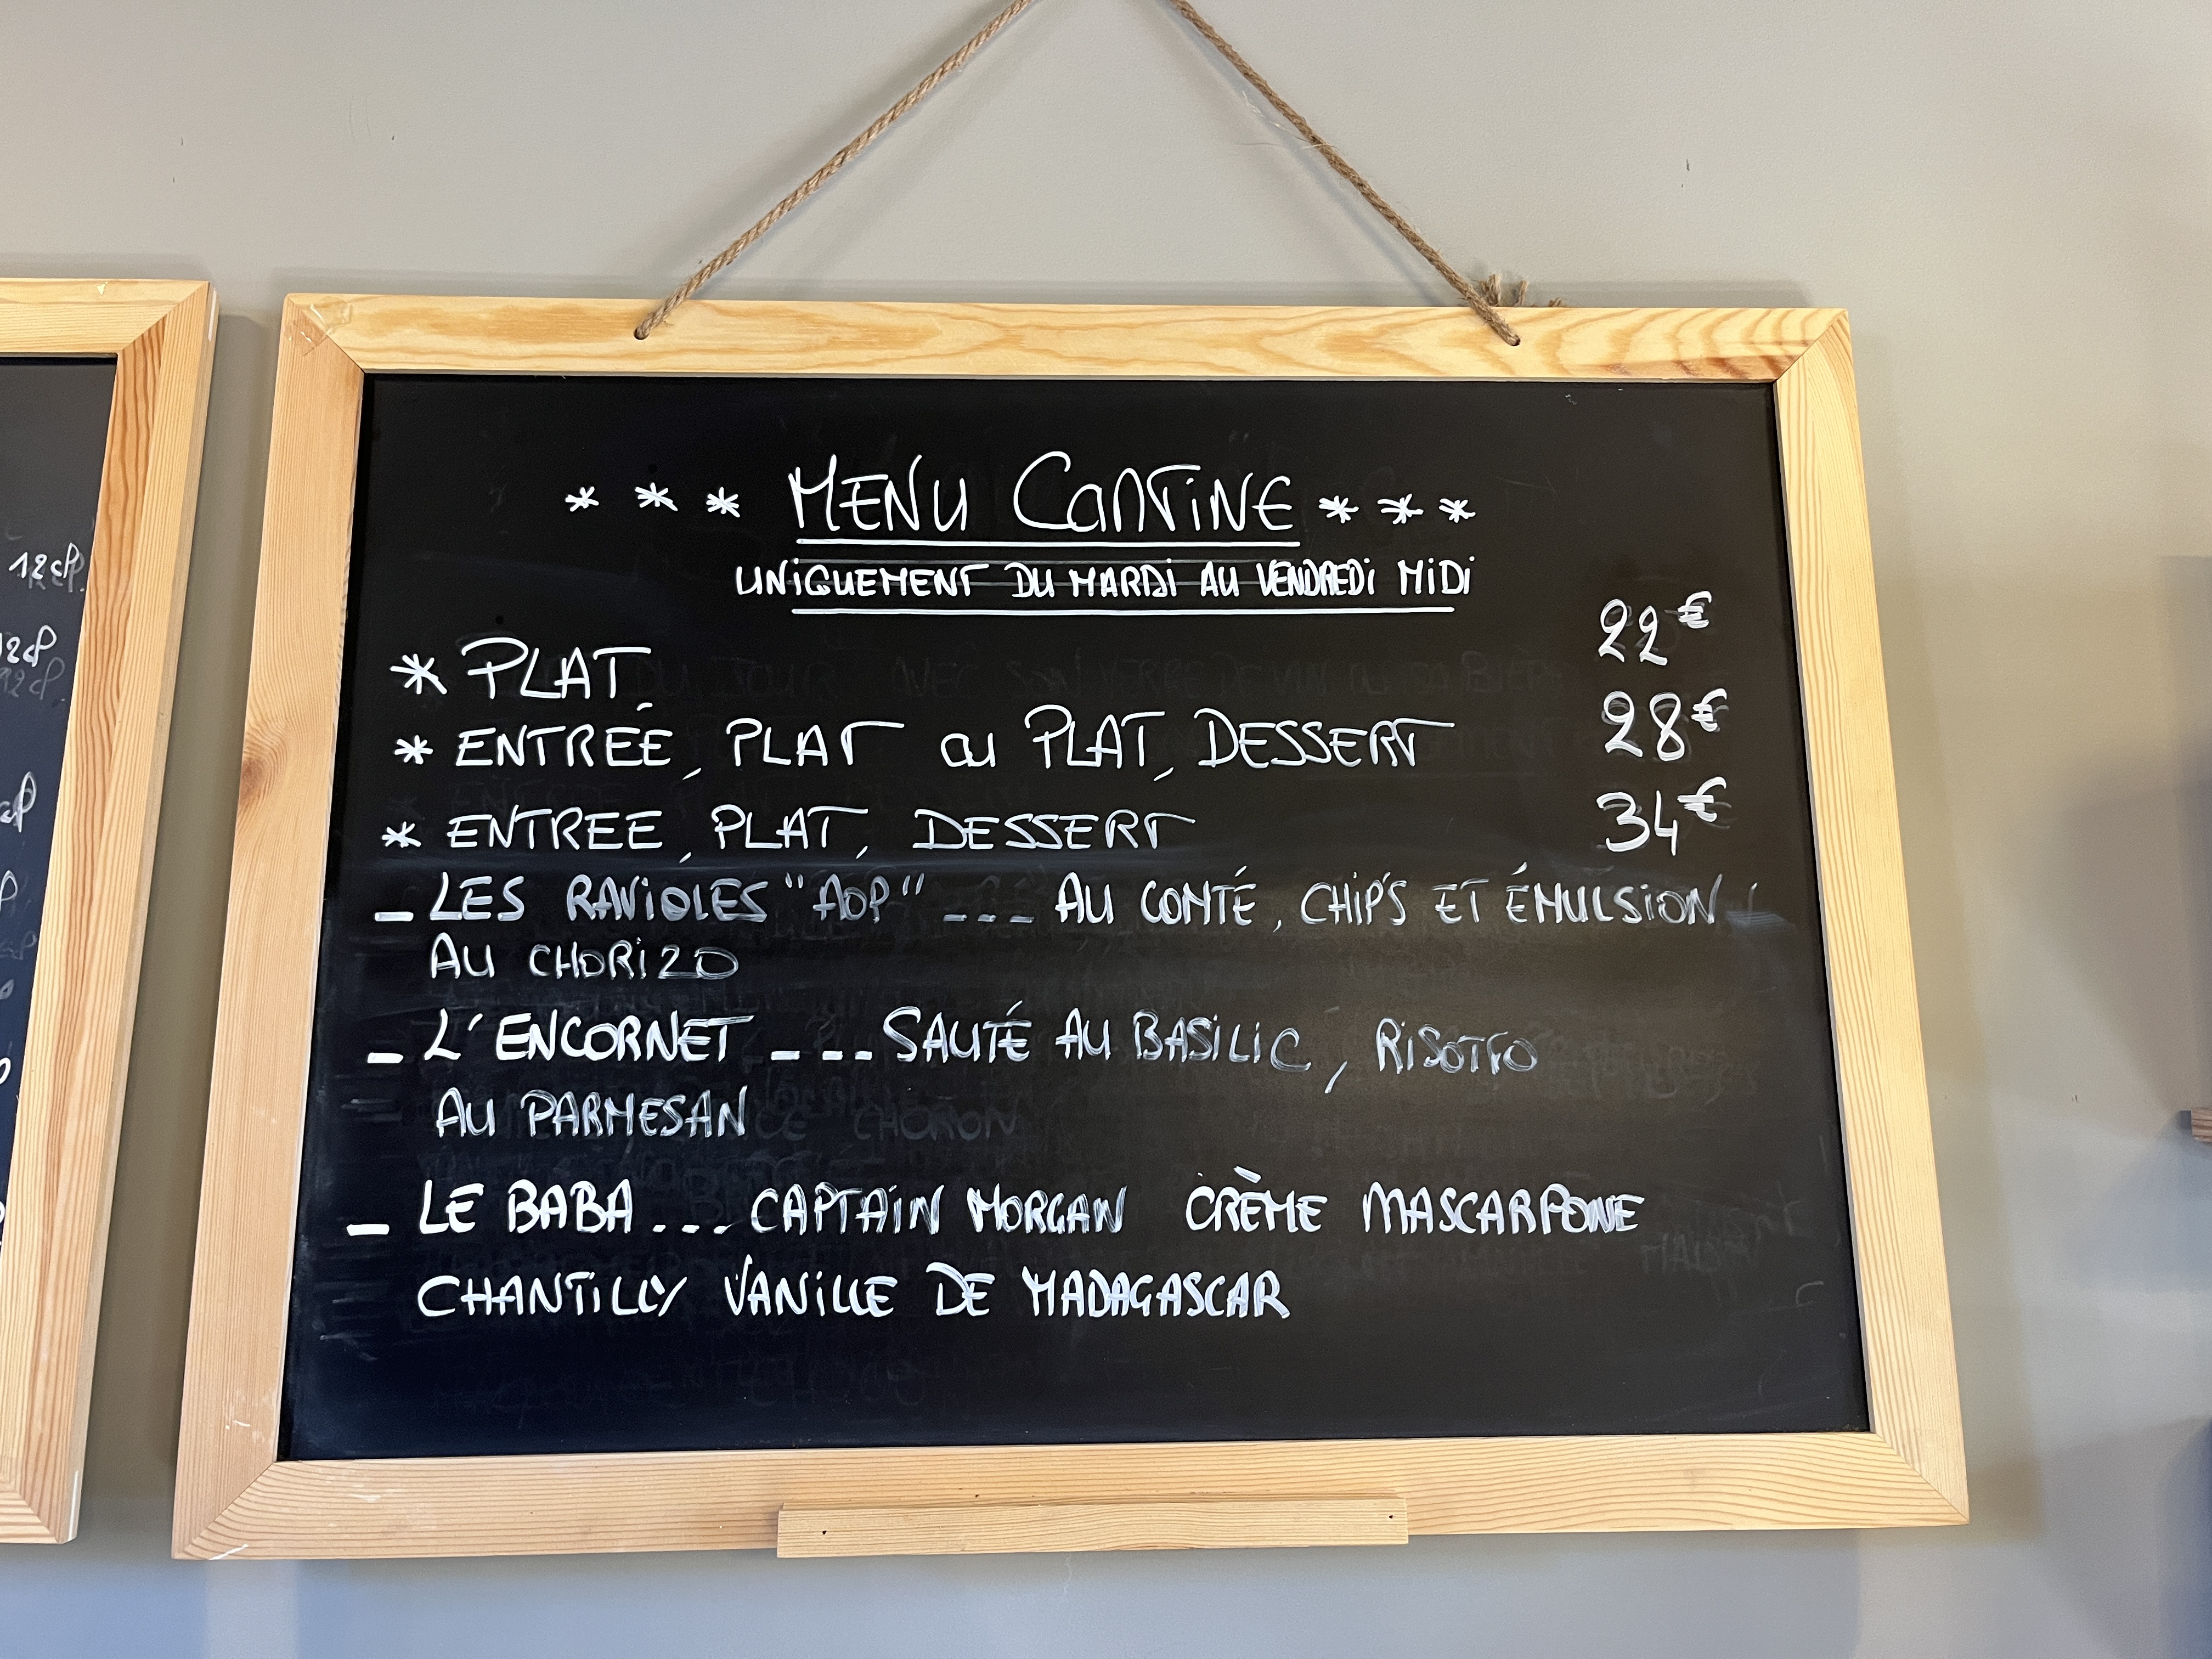 12cl
12cl
12cl.
cl
* * * MENU CANTINE * * *
UNIQUEMENT DU MARDI AU VENDREDI MIDI
* PLAT 22€
* ENTRÉE, PLAT ou PLAT, DESSERT 28€
* ENTREE, PLAT, DESSERT 34€
_ LES RAVIOLES "AOP" _ _ _ AU COMTÉ, CHIP'S ET ÉMULSION
AU CHORIZO
_ L'ENCORNET _ _ _ SAUTÉ AU BASILIC, RISOTTO
AU PARMESAN
_ LE BABA _ _ _ CAPTAIN MORGAN CRÈME MASCARPONE
CHANTILLY VANILLE DE MADAGASCAR